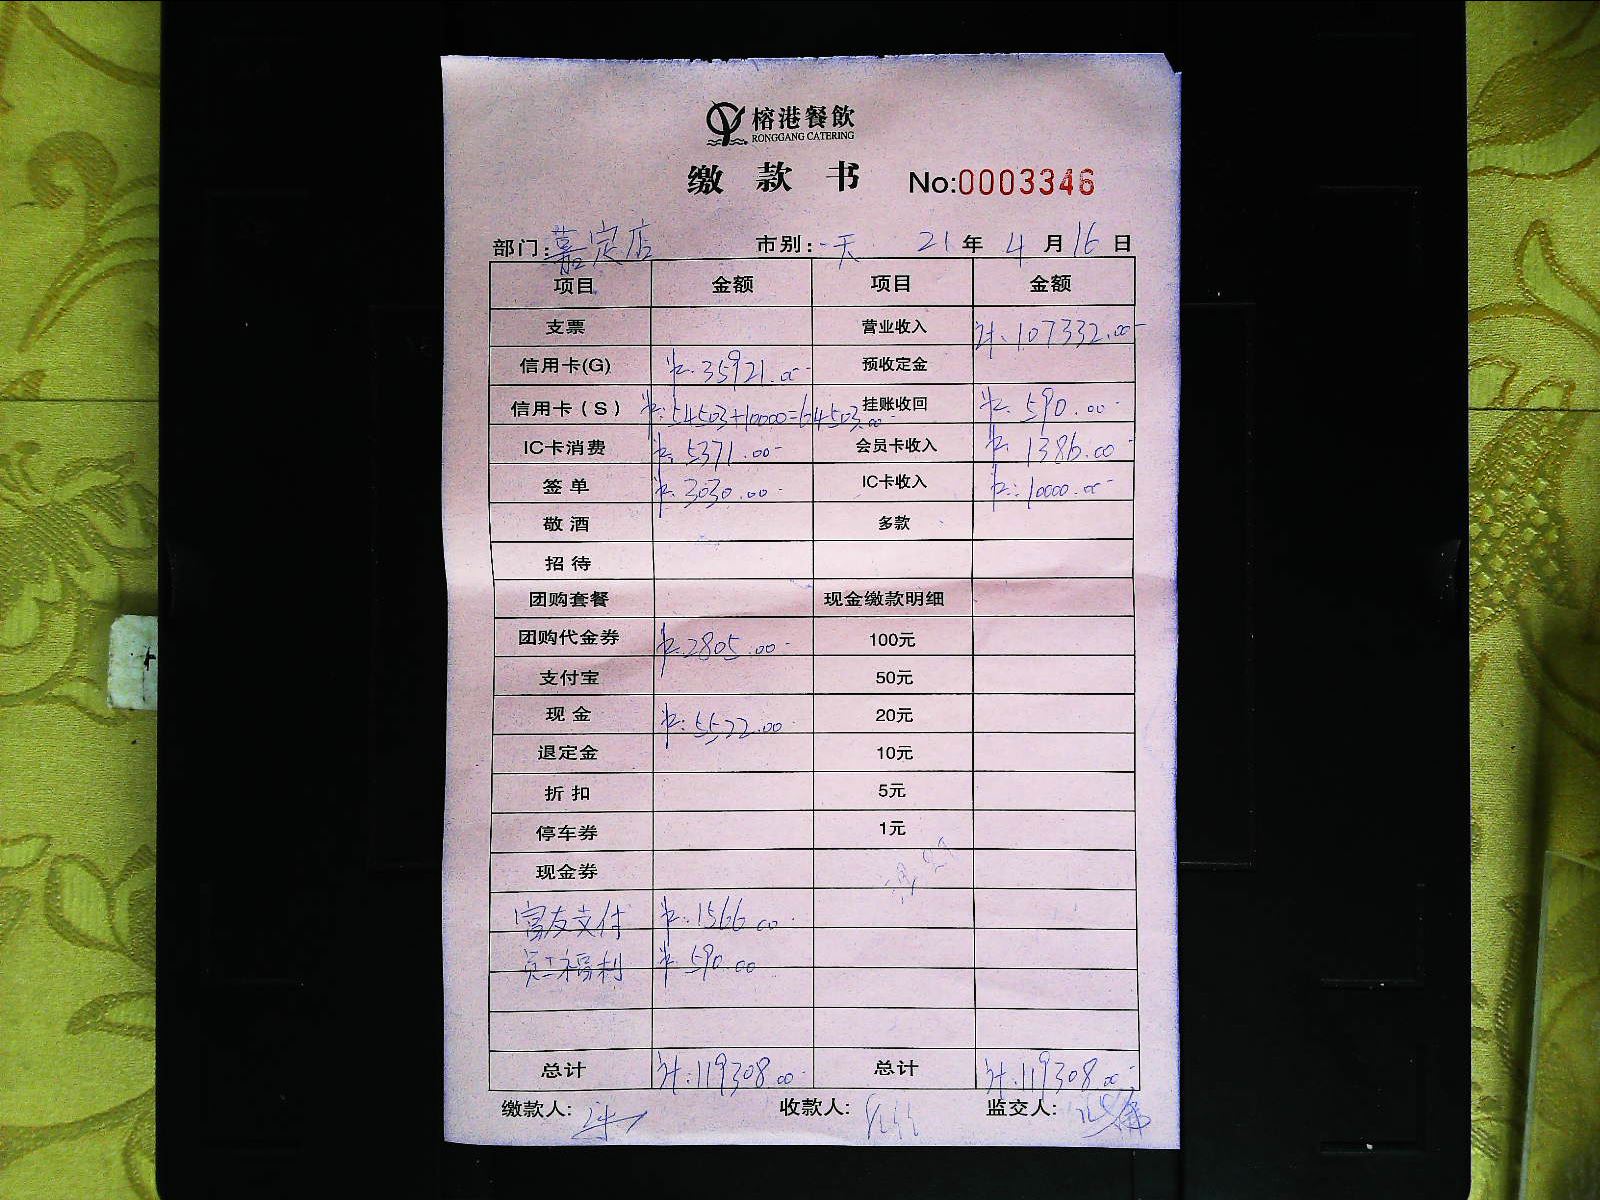 榕港餐飲
RONGGANG CATERING
缴款书 No:0003346
部门:嘉定店 市别:一天 21年4月16日
项目 金额 项目 金额
支票 营业收入 计:107332.00
信用卡(G) 计:35921.00 预收定金
信用卡(S) 计:54503+10000=64503.00 挂账收回 计:590.00
IC卡消费 计:5371.00 会员卡收入 计:1386.00
签单 计:3030.00 IC卡收入 计:10000.00
敬酒 多款
招待
团购套餐 现金缴款明细
团购代金券 计:2805.00 100元
支付宝 50元
现金 计:5522.00 20元
退定金 10元
折扣 5元
停车券 1元
现金券
富友支付 计:1566.00
员工福利 计:590.00
总计 计:119308.00 总计 计:119308.00
缴款人: 收款人: 监交人: